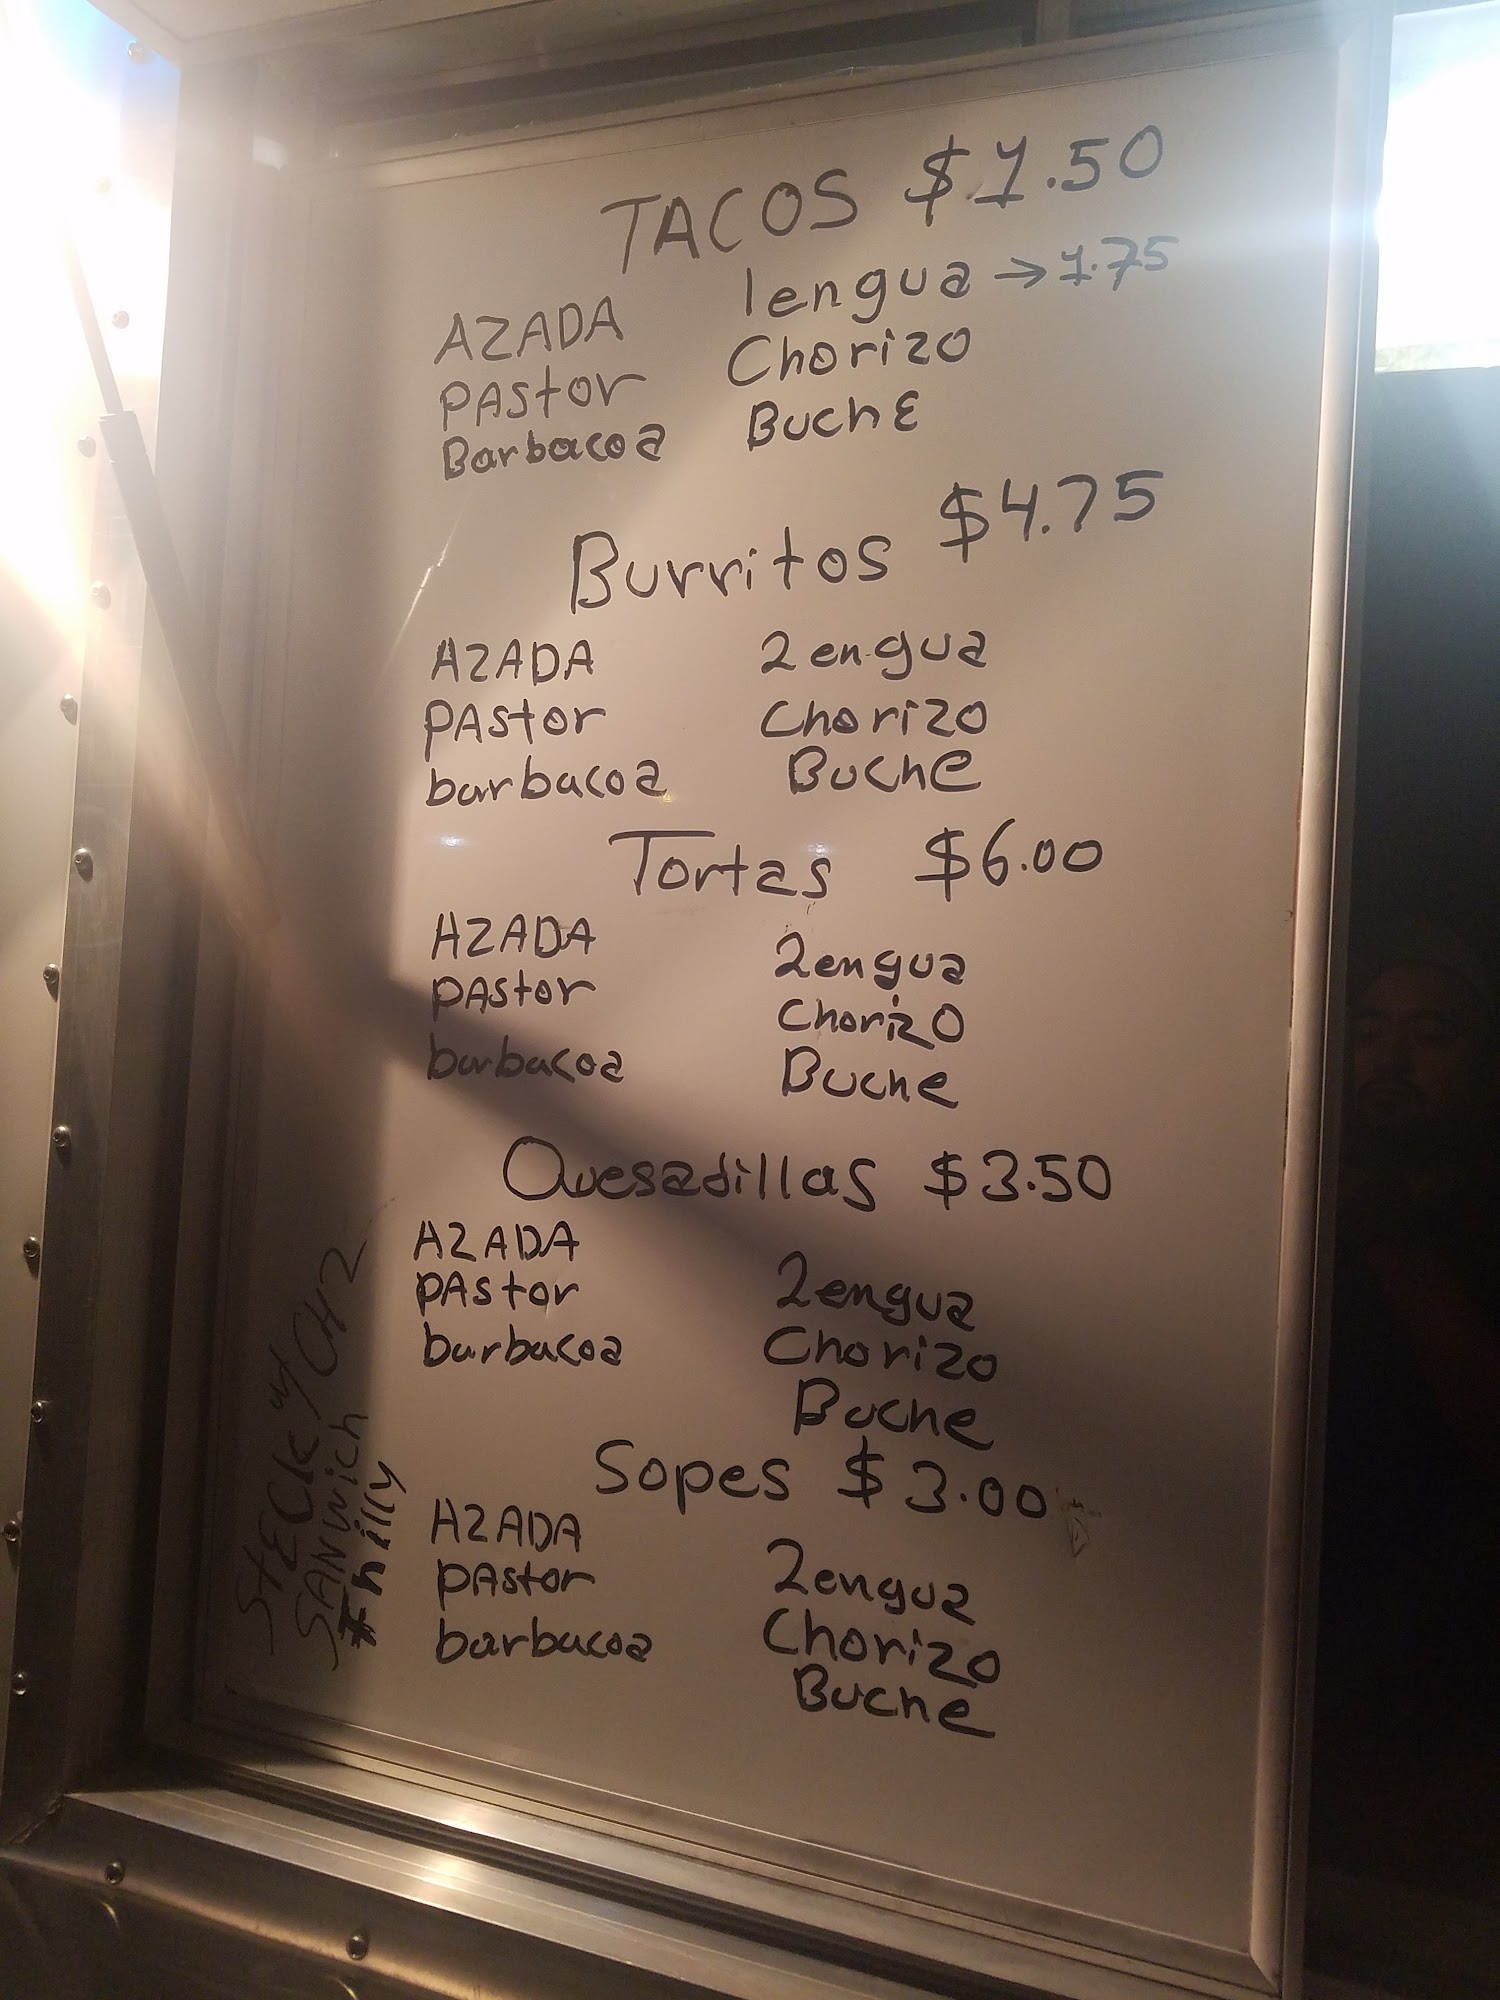 TACOS $1.50
AZADA
PAStor
Barbacoa
lengua → 1.75
Chorizo
BuchE
Burritos $4.75
AZADA
PAStor
barbacoa
Lengua
Chorizo
Buche
Tortas $6.00
AZADA
PAStor
barbacoa
Lengua
Chorizo
Buche
Quesadillas $3.50
AZADA
PAStor
barbacoa
Lengua
Chorizo
Buche
Sopes $3.00
AZADA
PAStor
barbacoa
Lengua
Chorizo
Buche
StECK w/ CHZ
SANWich
Philly